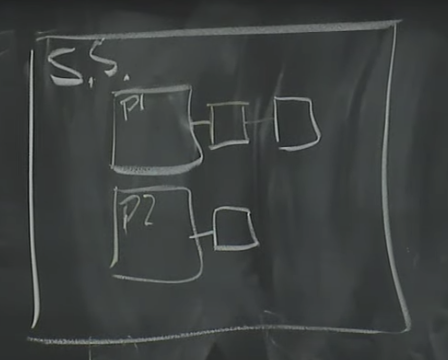 S.S.
P1
P2